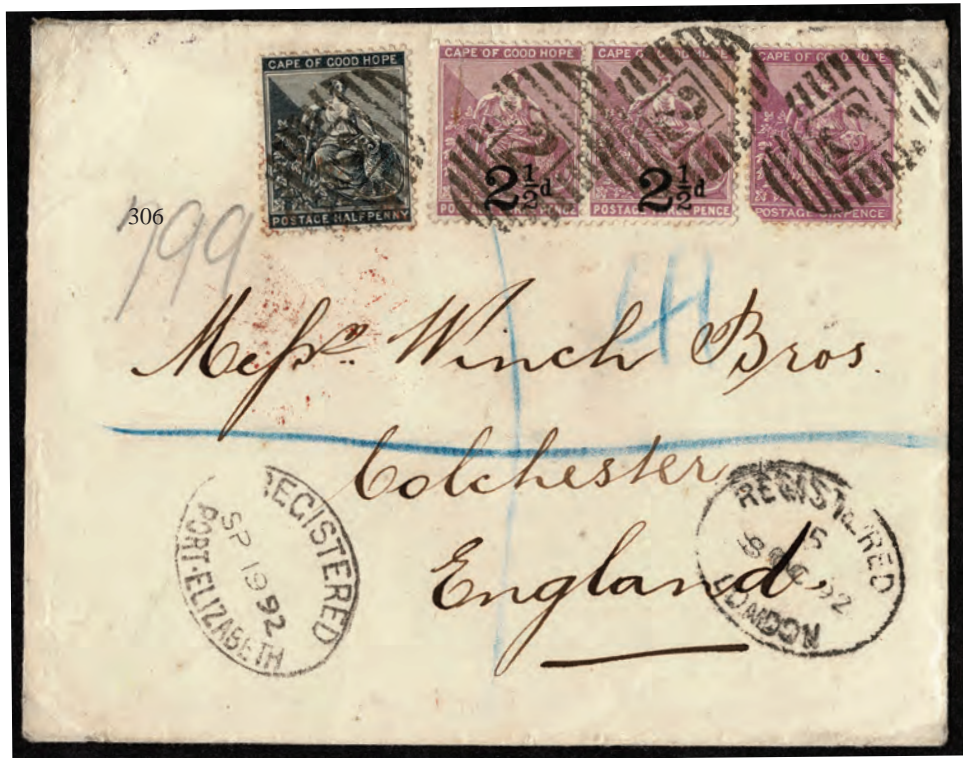 CAPE OF GOOD HOPE
POSTAGE HALFPENNY
CAPE OF GOOD HOPE
2½d
POSTAGE PENCE
CAPE OF GOOD HOPE
2½d
POSTAGE PENCE
CAPE OF GOOD HOPE
POSTAGE SIXPENCE
306
799
41
Messrs. Winch Bros.
Colchester
England
REGISTERED
SP 19 92
PORT-ELIZABETH
REGISTERED
15
8 OC 92
LONDON